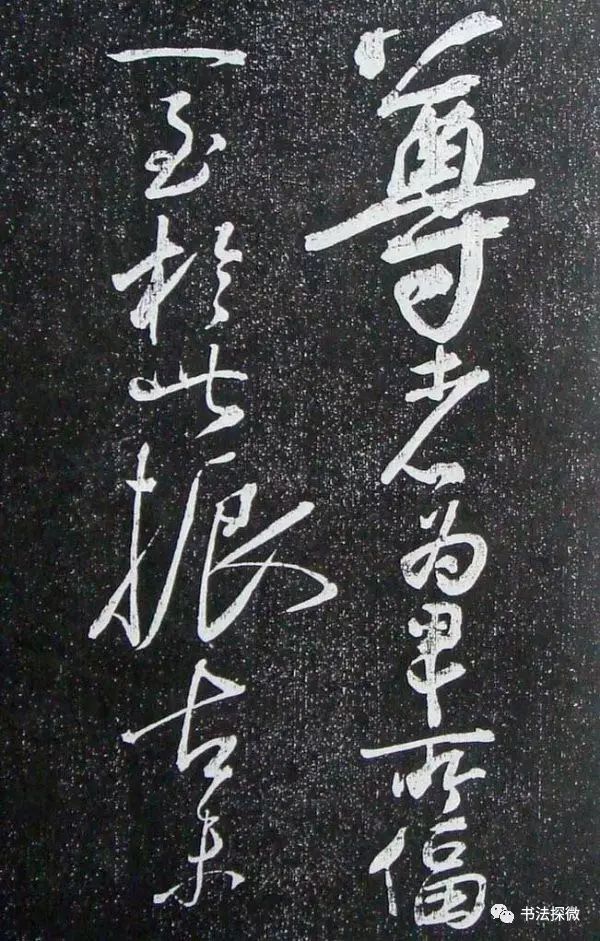 尊者为卑所偪
一至於此振古未
书法探微